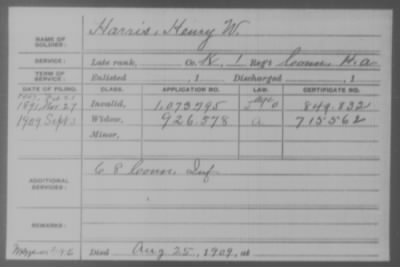 NAME OF SOLDIER: Harris, Henry W.
SERVICE: Late rank, Co. K, 1 Reg't Conn. H.a
TERM OF SERVICE: Enlisted , 1 Discharged , 1
DATE OF FILING. CLASS. APPLICATION NO. LAW. CERTIFICATE NO.
1891, Mar. 27 Invalid, 1,073,595 849.832
1909 Sept 3 Widow, 926.578 a. 715562
Minor,
ADDITIONAL SERVICES: C 8 Conn. Inf.
REMARKS:
Died Aug 25, 1909, at